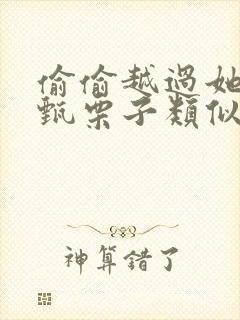 偷偷越过她
甄栗子類似
神算錯了